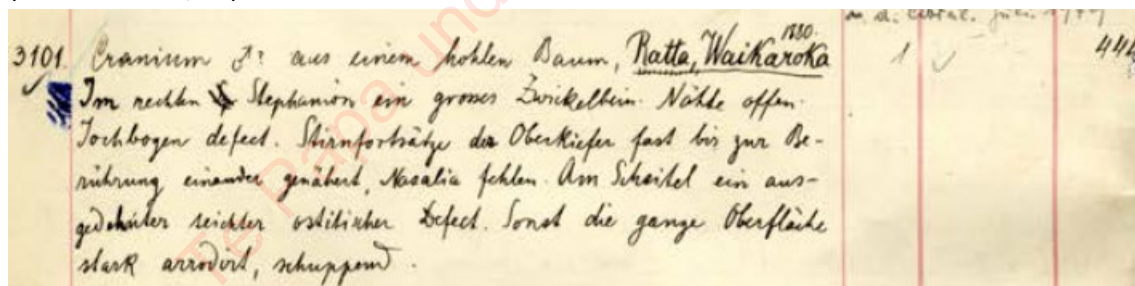 3101 Cranium ♂? aus einem hohlen Baum, Ratta, Waikaroka 1880. 1 ✓ 444
Im rechten Stephanion ein grosses Zwickelbein. Nähte offen.
Jochbogen defect. Stirnfortsätze der Oberkiefer fast bis zur Be-
rührung einander genähert, Nasalia fehlen. Am Scheitel ein aus-
gedehnter seichter ostitischer Defect. Sonst die ganze Oberfläche
stark arrodirt, schuppend.
Te Papa